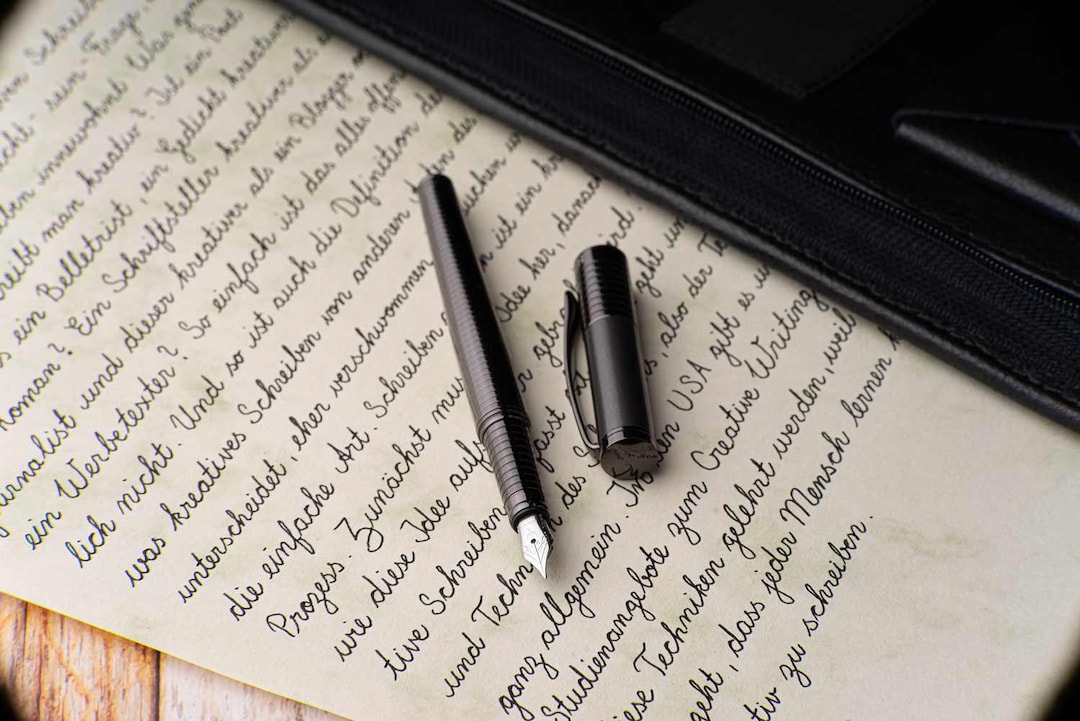 Schreiben
sein- Frage
innewohnt. Was
man kreativ? Ist ein Poet
ein Belletrist, ein Gedicht kreativer
Roman? Ein Schriftsteller kreativer als
und dieser kreativer als ein Blogger
ein Werbetexter? So einfach ist das alles offen
lich nicht. Und so ist auch die Definition
was kreatives Schreiben von anderen
unterscheidet, eher verschwommen
die einfache Art. Schreiben ist ein
Prozess. Zunächst Idee her,
wie diese Idee
tive Schreiben fasst geht
und des also der
ganz allgemein. In den USA gibt es
Studienangebote zum Creative Writing
Techniken gelehrt werden, weil
geht, dass jeder Mensch lernen
tiv zu schreiben.